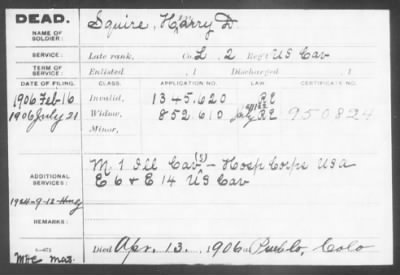 DEAD.
NAME OF SOLDIER:
Squire, Harry D.
SERVICE:
Late rank, Co. L, 2 Reg't US Cav
TERM OF SERVICE:
Enlisted , 1 Discharged , 1
DATE OF FILING. CLASS. APPLICATION NO. LAW. CERTIFICATE NO.
1906 Feb 16 Invalid, 1345.620
1906 July 21 Widow, 852.610 950824
Minor,
ADDITIONAL SERVICES:
M. 1 Ill Cav (S) - Hosp Corps USA
E 6 & E 14 US Cav
REMARKS:
Died Apr. 13, 1906 Pueblo, Colo